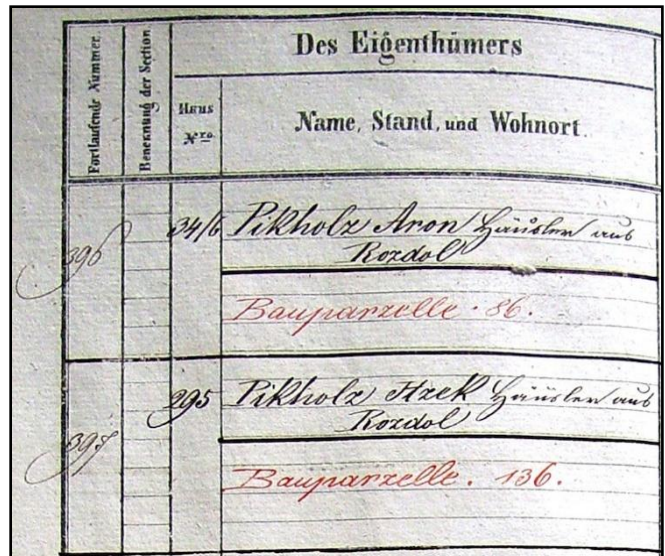 Fortlaufende Nummer.
Benennung der Section
Des Eigenthümers
Haus
Nro.
Name, Stand, und Wohnort.
396
34/6 Pikholz Aron Häusler aus
Rozdol
Bauparzelle . 86.
397
295 Pikholz Itzek Häusler aus
Rozdol
Bauparzelle . 136.